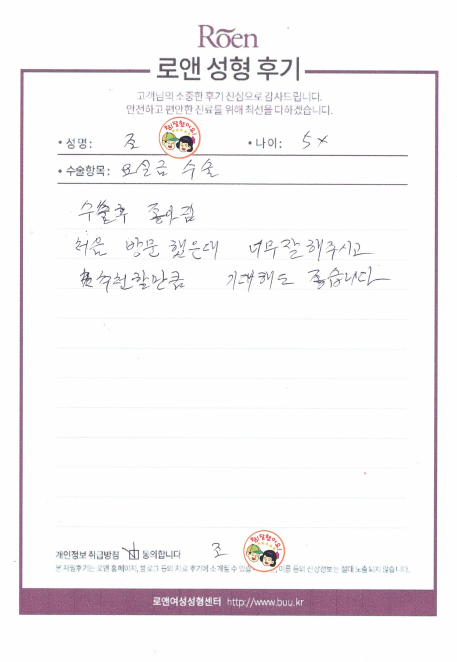 Rōen
로앤 성형 후기
고객님의 소중한 후기 진심으로 감사드립니다.
안전하고 편안한 진료를 위해 최선을 다하겠습니다.
• 성명: 조 • 나이: 5x
• 수술항목: 요실금 수술
수술후 좋아짐
처음 방문 했는데 너무잘해주시고
추천할만큼 기대해도 좋습니다
개인정보 취급방침 동의합니다 조
본 자필후기는 로앤 홈페이지, 블로그 등의 치료 후기에 소개될 수 있 이름 등의 신상정보는 절대 노출되지 않습니다.
로앤여성성형센터 http://www.buu.kr